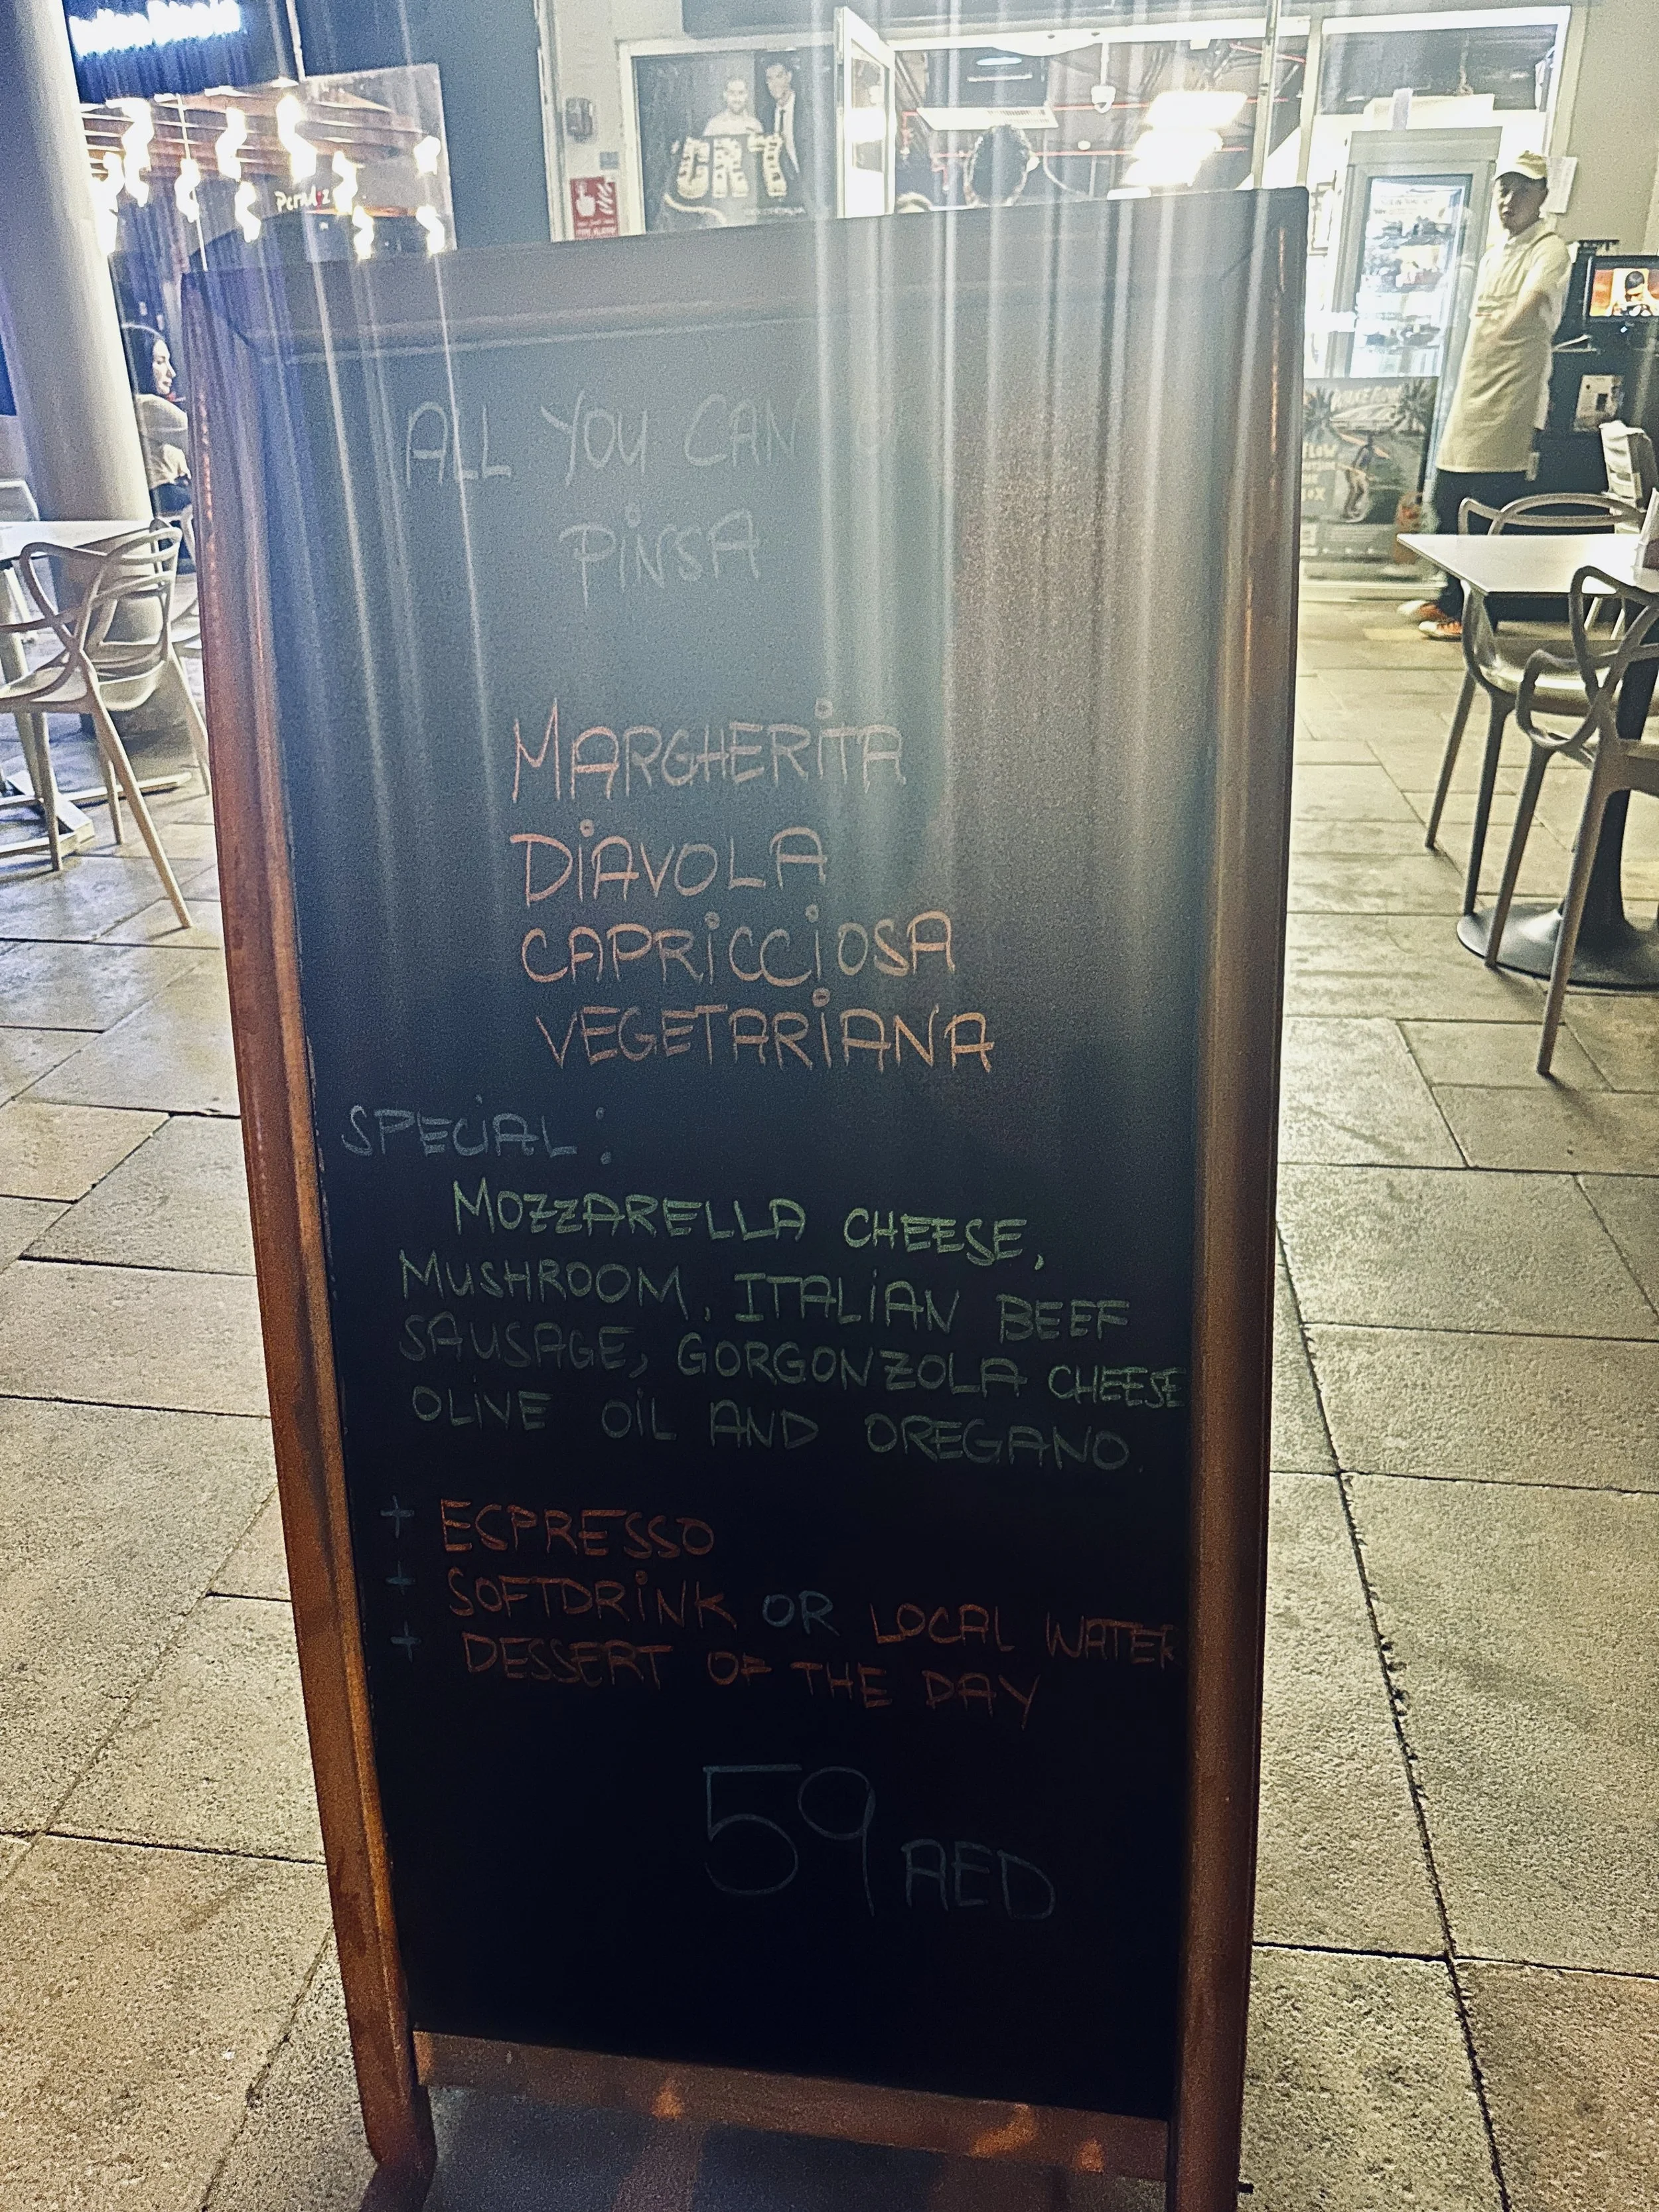 ALL YOU CAN
PiNSA
MARGHERiTA
DiAVOLA
CAPRiCCiOSA
VEGETARiANA
SPECiAL:
MOZZARELLA CHEESE,
MUSHROOM, ITALiAN BEEF
SAUSAGE, GORGONZOLA CHEESE
OLiVE OiL AND OREGANO.
+ ESPRESSO
+ SOFTDRiNK OR LOCAL WATER
+ DESSERT OF THE DAY
59 AED